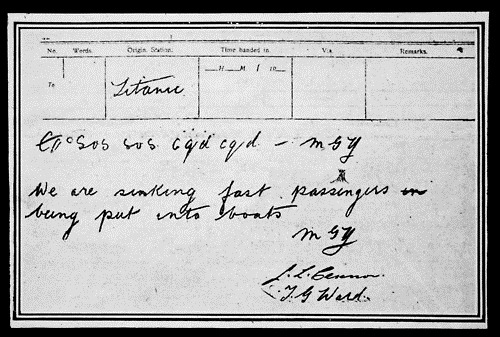 No. Words. Origin. Station. Time handed in. Via. Remarks.
To Titanic H M 10
SOS SOS cqd cqd - MGY
We are sinking fast passengers
being put into boats
MGY